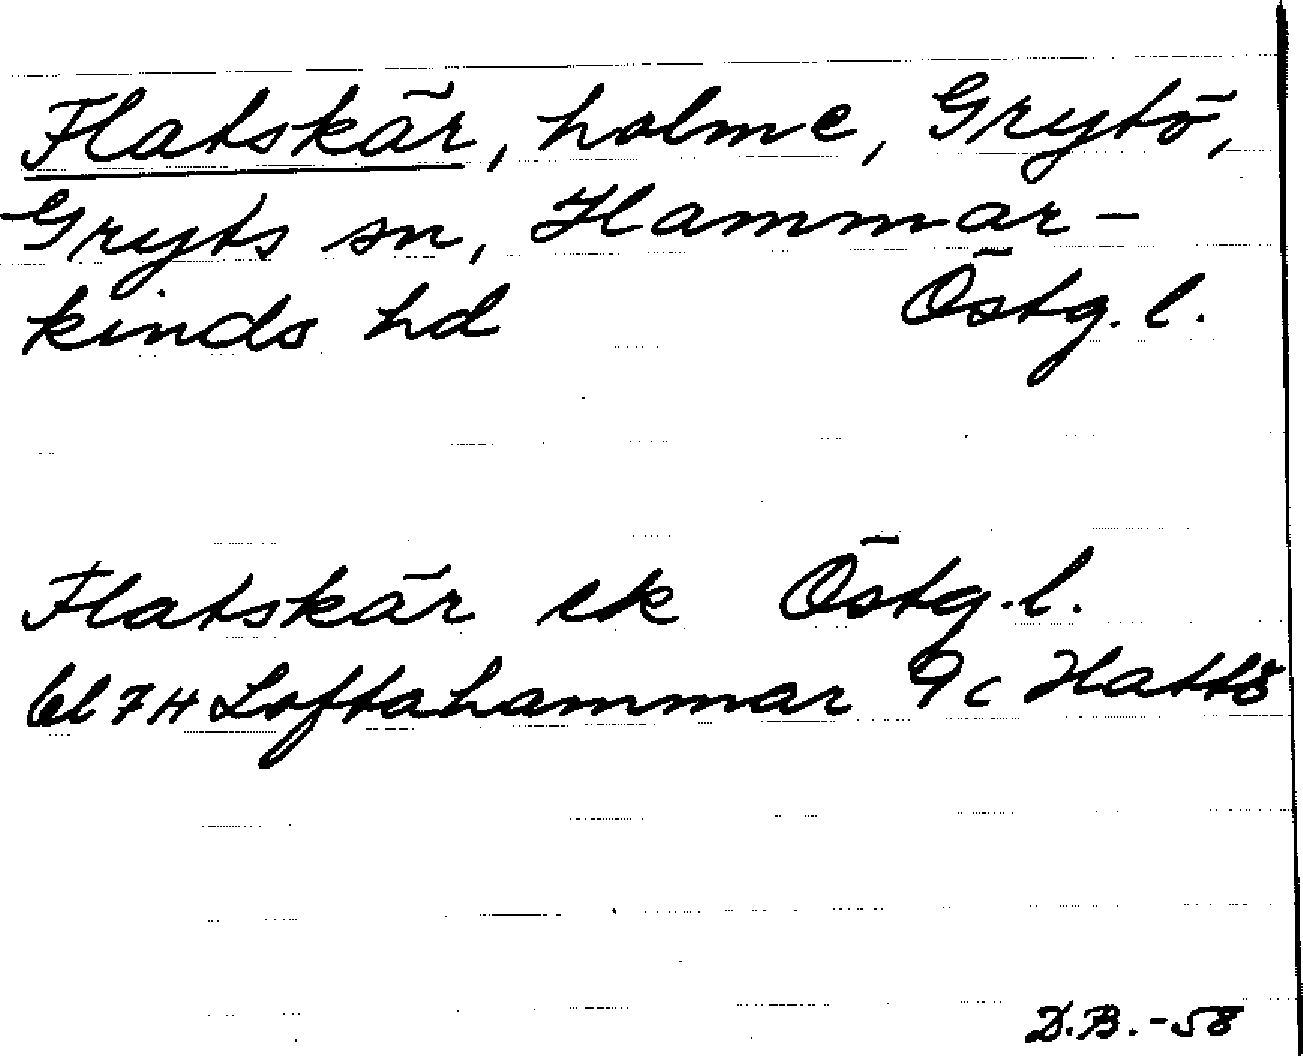 Flatskär, holme, Grytö,
Gryts sn, Hammar-
kinds hd Östg. l.
Flatskär ek Östg. l.
bl 7 H Loftahammar 9c Hattö
D.B. -58